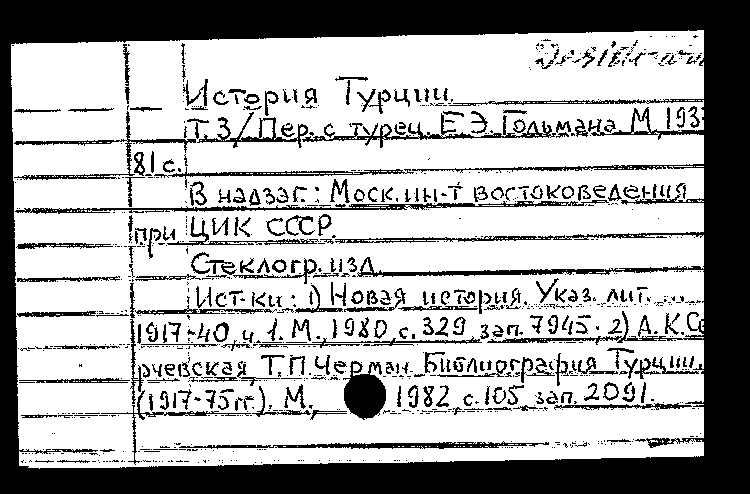 Desiderata
История Турции.
Т. 3/Пер. с турец. Е.Э. Гольмана. М, 193
81 с.
В надзаг.: Моск. ин-т востоковедения
при ЦИК СССР.
Стеклогр. изд.
Ист-ки: 1) Новая история. Указ. лит. ...
1917-40, ч. 1. М., 1980, с. 329, зап. 7945; 2) А.К. Све
рчевская, Т.П. Черман. Библиография Турции.
(1917-75 гг.). М., 1982, с. 105, зап. 2091.